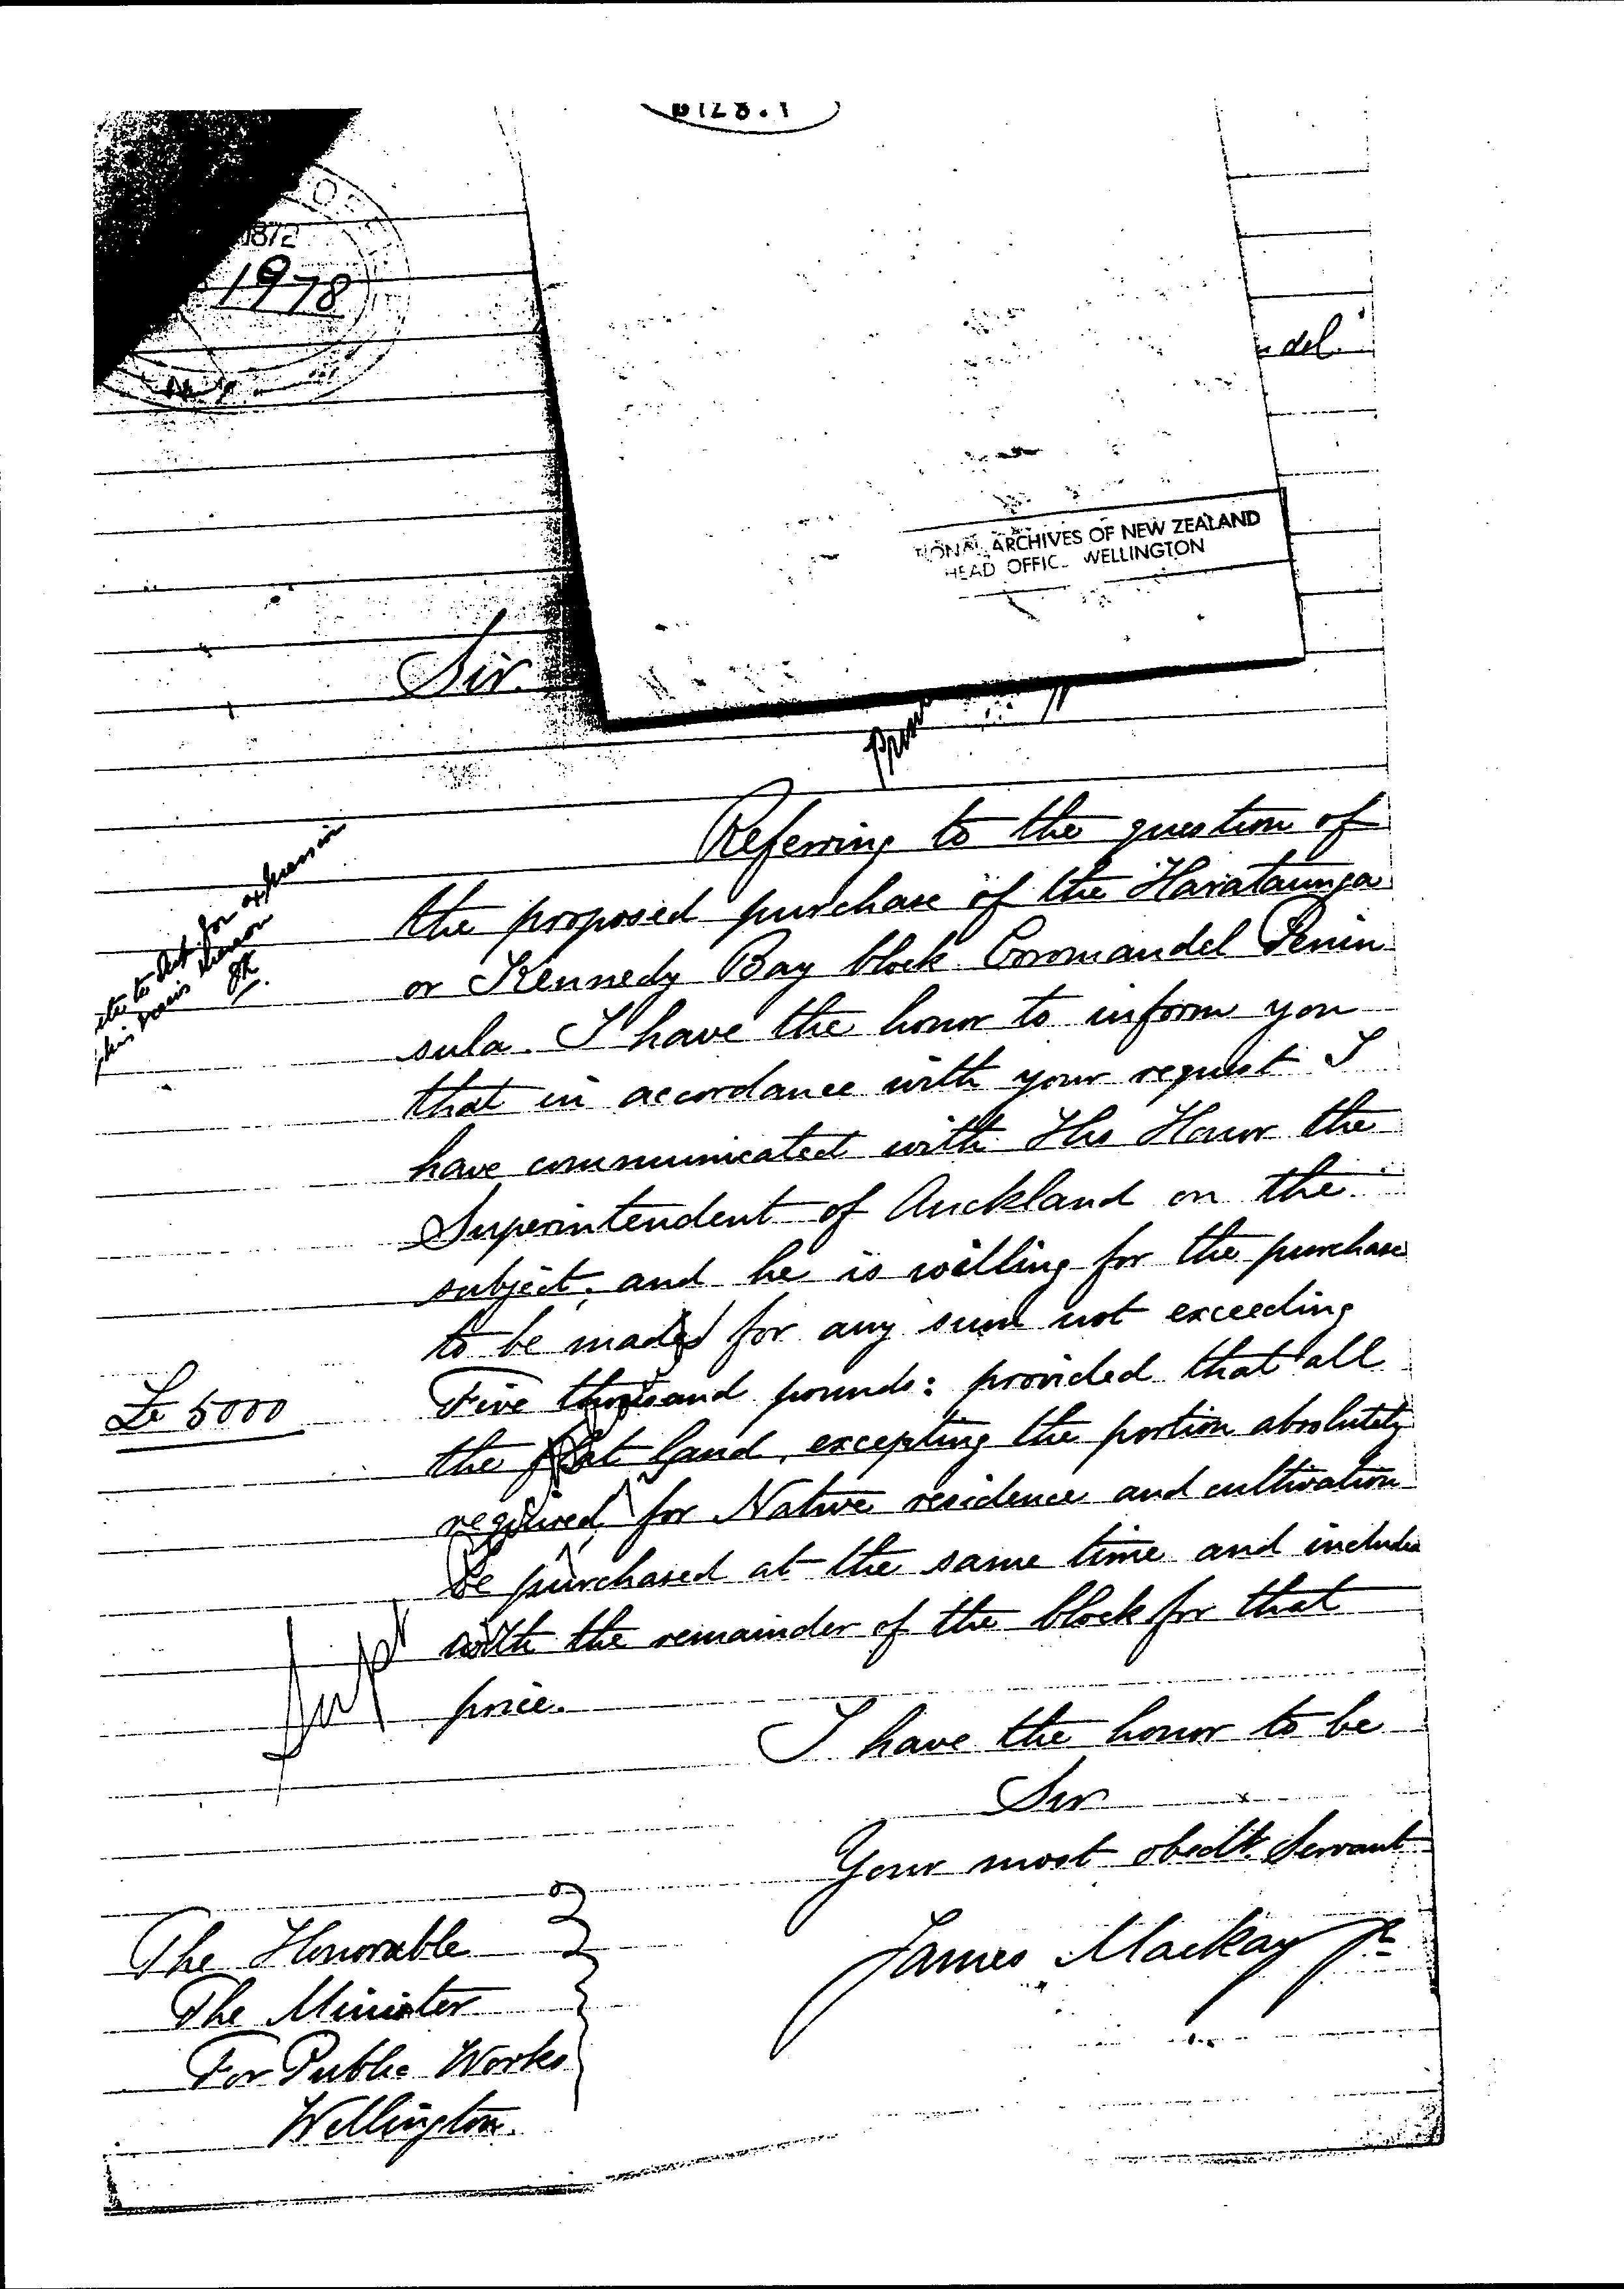 1872
1978
del.
ARCHIVES OF NEW ZEALAND
HEAD OFFIC WELLINGTON
Sir.
Referring to the question of
the proposed purchase of the Harataunga
or Kennedy Bay block Coromandel Penin
sula. I have the honor to inform you
that in accordance with your request I
have communicated with His Honor the
Superintendent of Auckland on the
subject, and he is willing for the purchase
to be made for any sum not exceeding
£ 5000
Five thousand pounds: provided that all
the flat land, excepting the portion absolutely
required for Native residence and cultivation
be purchased at the same time and include
with the remainder of the block for that
price.
I have the honor to be
Sir
Your most obedt. Servant
James Mackay Jr
The Honorable
The Minister
For Public Works
Wellington.